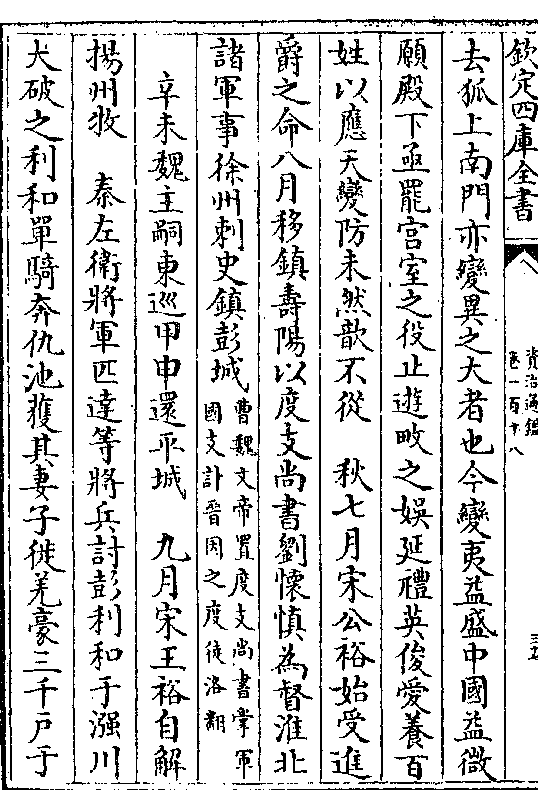 欽定四庫全書
資治通鑑
卷一百十八
去狐上南門亦變異之大者也今變夷益盛中國益微
願殿下亟罷宮室之役止遊畋之娛延禮英俊愛養百
姓以應天變防未然歆不從　秋七月宋公裕始受進
爵之命八月移鎮壽陽以度支尚書劉懷慎為督淮北
諸軍事徐州刺史鎮彭城
曹魏文帝置度支尚書掌軍
國支計晉因之度徒洛翻
辛未魏主嗣東巡甲申還平城　九月宋王裕自解
揚州牧　秦左衛將軍匹達等將兵討彭利和于漒川
大破之利和單騎奔仇池獲其妻子徙羌豪三千戶于